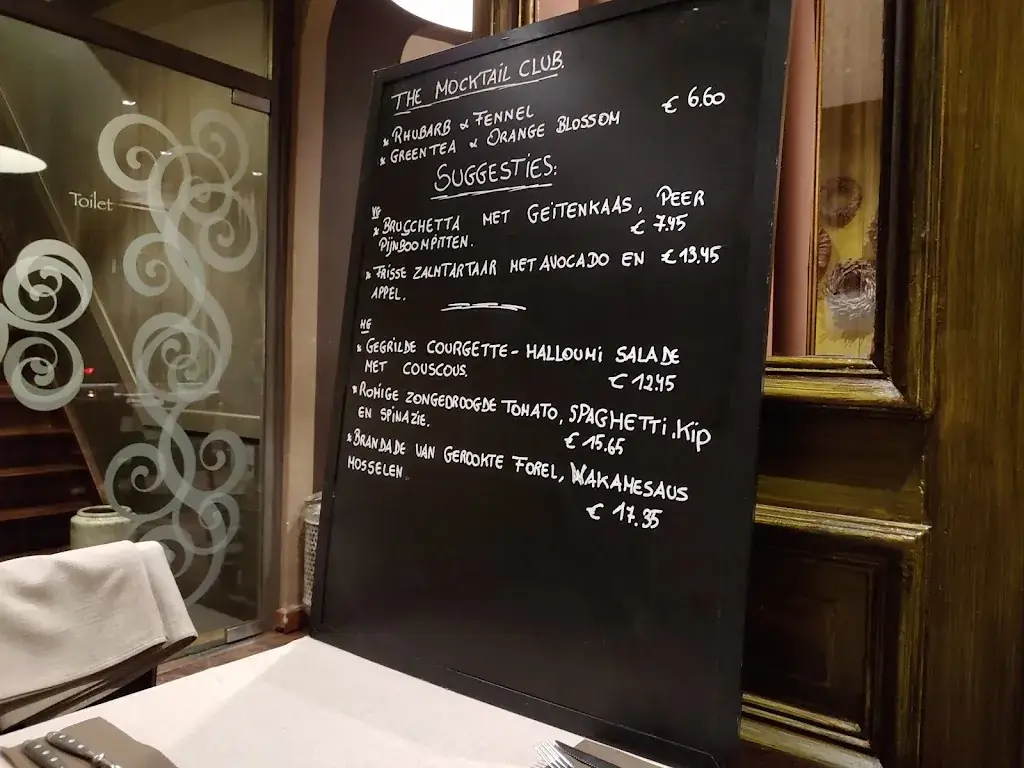 THE MOCKTAIL CLUB.
* RHUBARB & FENNEL € 6.60
* GREEN TEA & ORANGE BLOSSOM
SUGGESTIES:
VG
* BRUSCHETTA MET GEITENKAAS, PEER
PIJNBOOMPITTEN. € 7.45
* FRISSE ZALMTARTAAR MET AVOCADO EN € 13.45
APPEL.
HG
* GEGRILDE COURGETTE - HALLOUMI SALADE
MET COUSCOUS. € 12.45
* ROMIGE ZONGEDROOGDE TOMATO, SPAGHETTI, KIP
EN SPINAZIE. € 15.65
* BRANDADE VAN GEROOKTE FOREL, WAKAMESAUS
MOSSELEN. € 17.35
Toilet